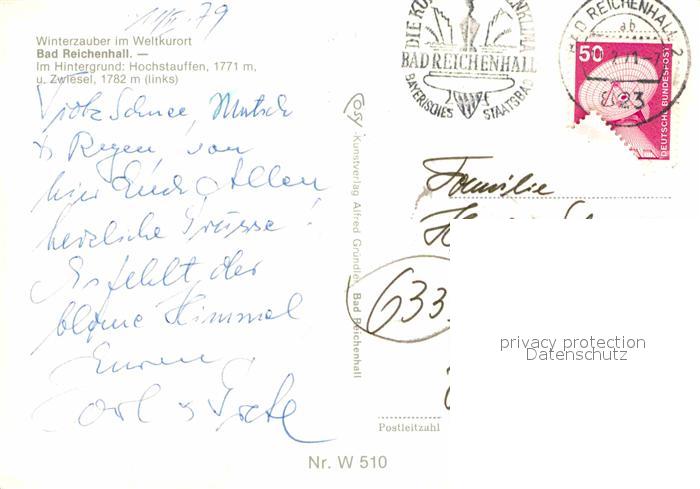 11/II. 79
Winterzauber im Weltkurort
Bad Reichenhall. —
Im Hintergrund: Hochstauffen, 1771 m,
u. Zwiesel, 1782 m (links)
Trotz Schnee, Matsch
& Regen, von
hier Euch Allen
herzliche Grüsse!
Es fehlt der
blaue Himmel
Euren
Carl u Grete
Cosy
-Kunstverlag Alfred Gründler Bad Reichenhall
BAD REICHENHALL
BAYERISCHES STAATSBAD
BAD REICHENHALL 2
ab
23
50
DEUTSCHE BUNDESPOST
Familie
633
privacy protection
Datenschutz
Postleitzahl
Nr. W 510